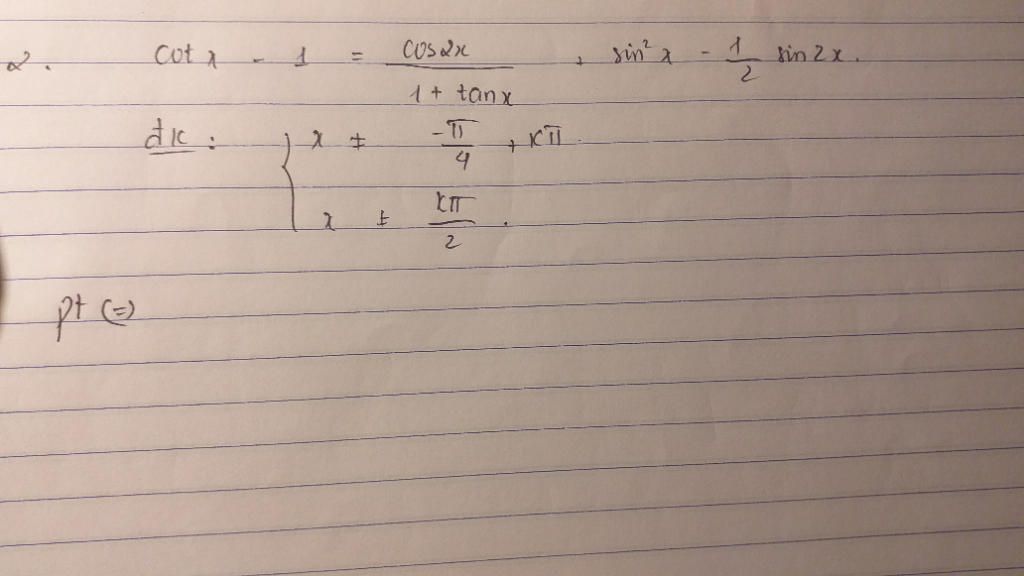 2. cot x - 1 = cos2x / (1 + tanx) + sin² x - 1/2 sin 2x.
đk: { x ≠ -π/4 + kπ
x ≠ kπ/2.
pt (=)